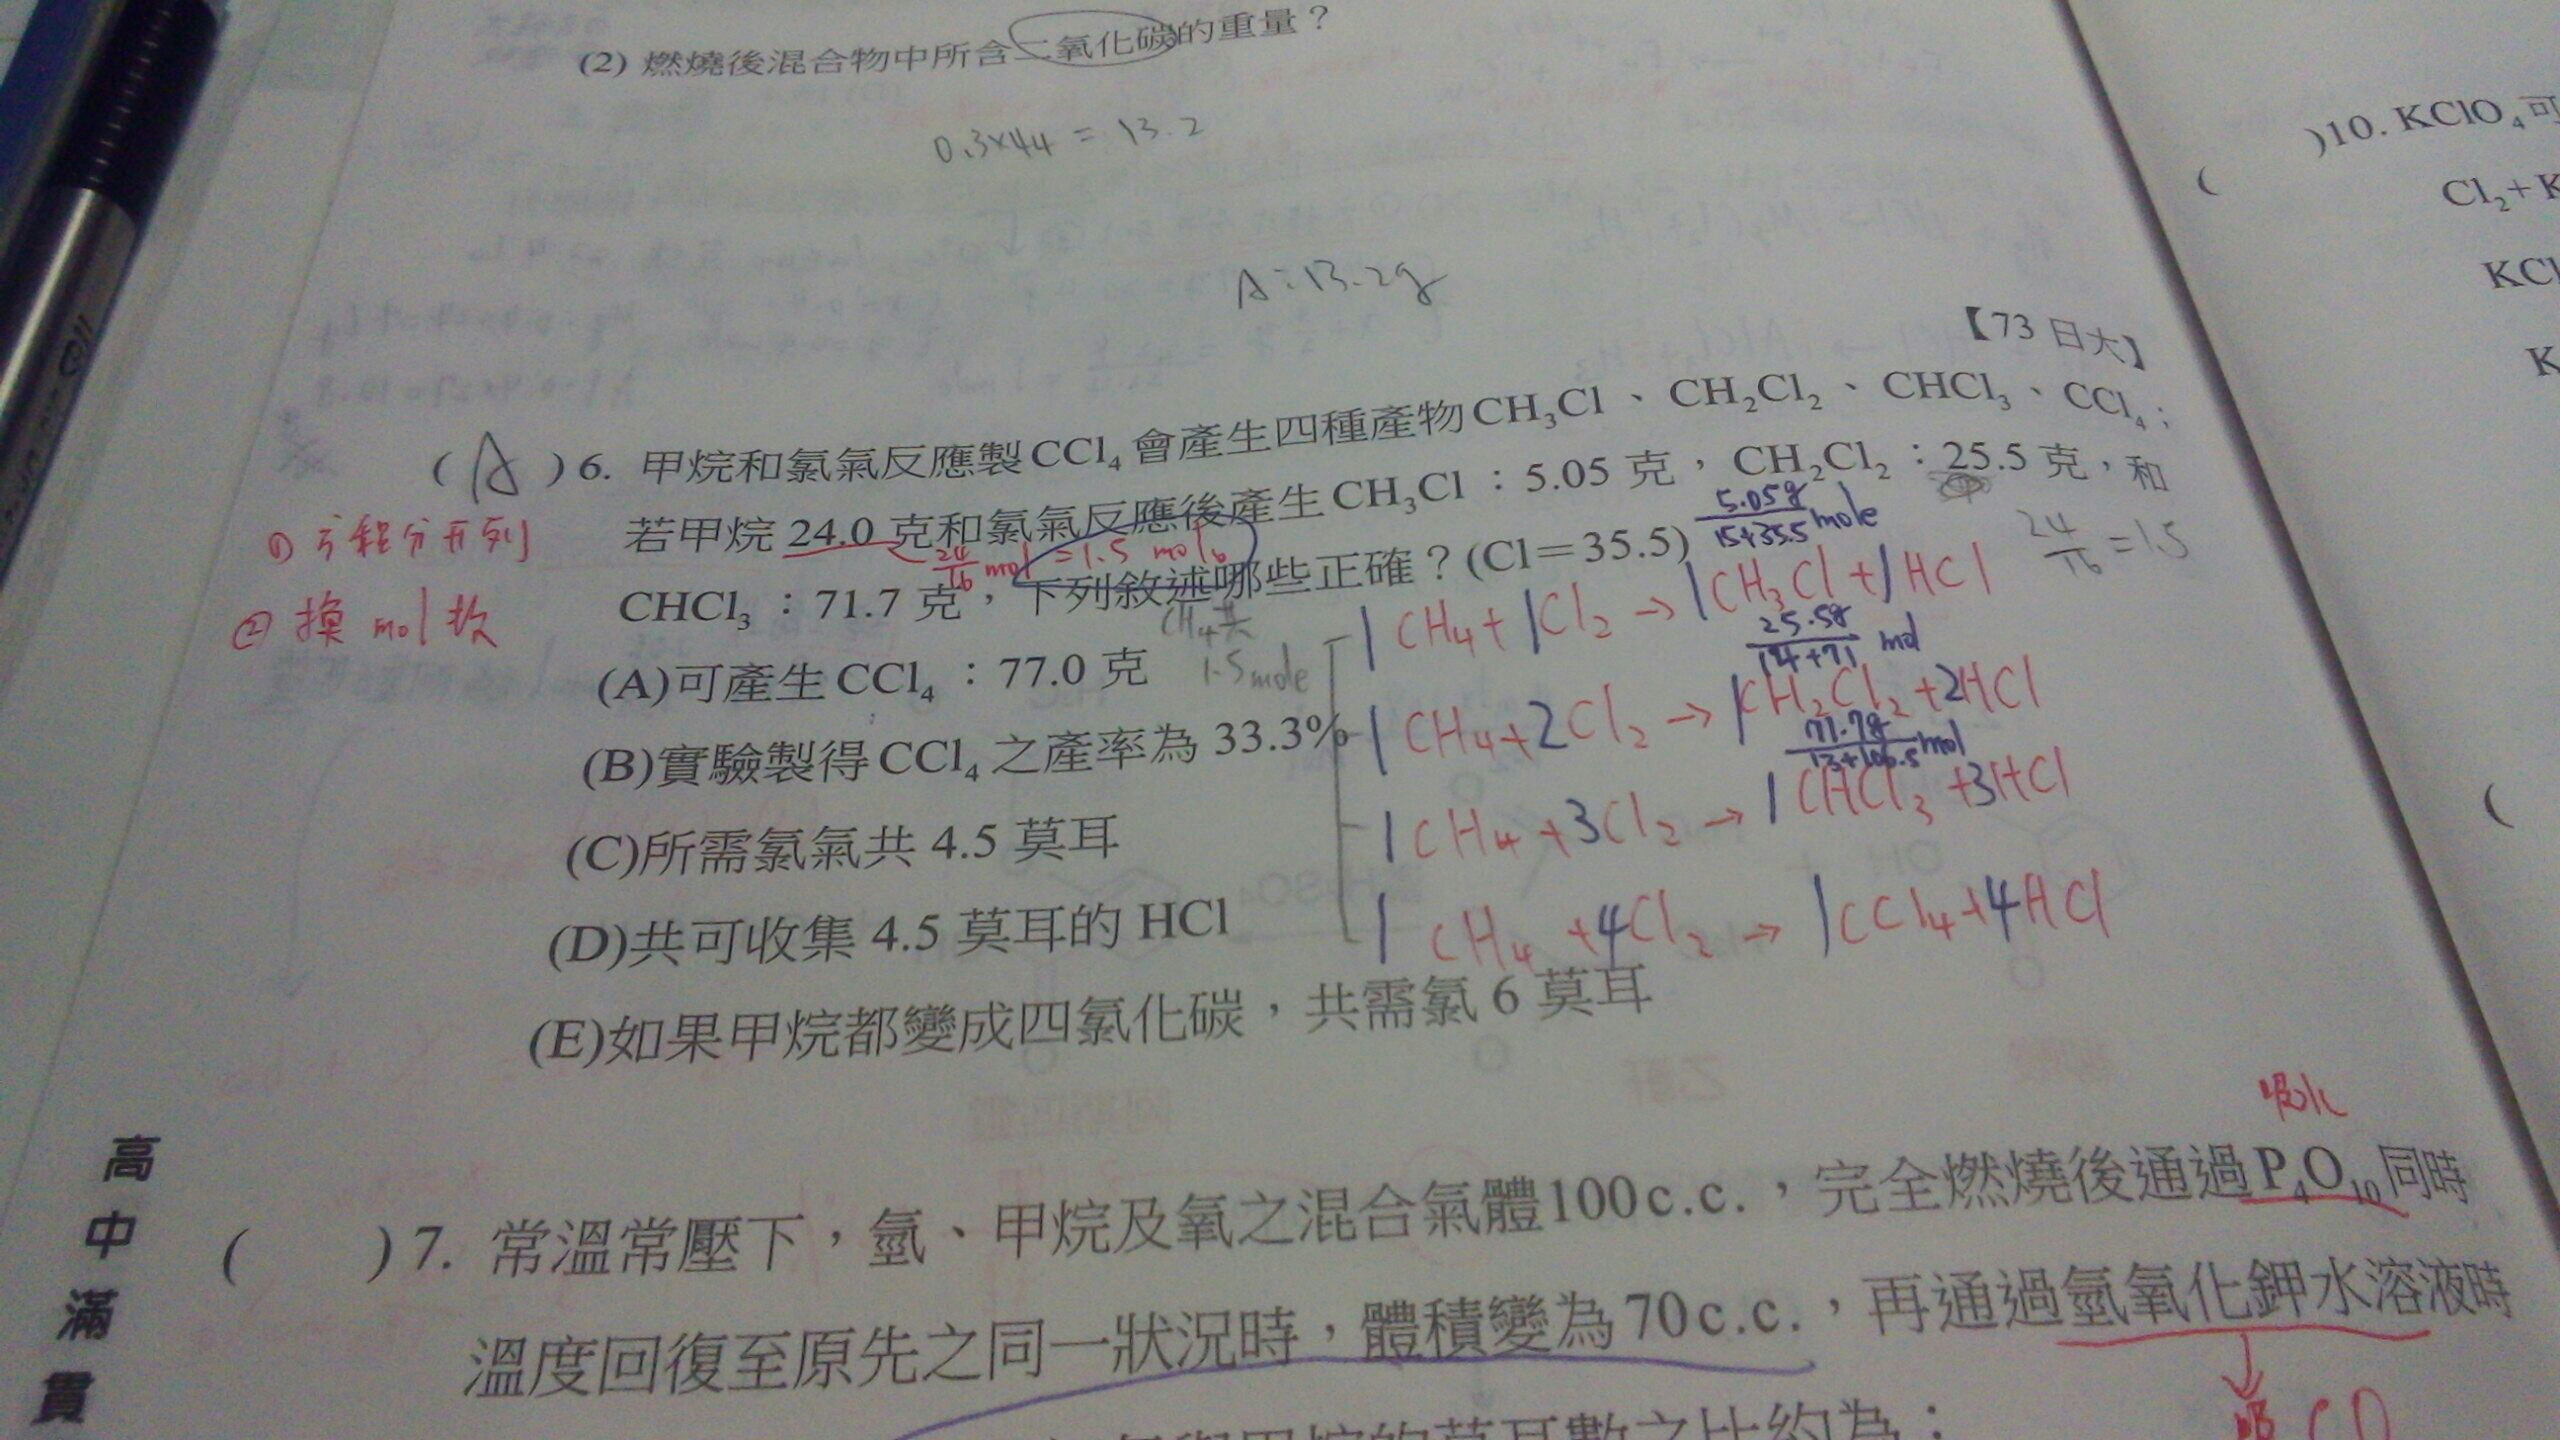 (2) 燃燒後混合物中所含二氧化碳的重量？
0.3×44 = 13.2
A:13.2g
【73 日大】
(A)6. 甲烷和氯氣反應製CCl₄會產生四種產物CH₃Cl、CH₂Cl₂、CHCl₃、CCl₄；
若甲烷 24.0 克和氯氣反應後產生CH₃Cl：5.05 克，CH₂Cl₂：25.5 克，和
CHCl₃：71.7 克，下列敘述哪些正確？(Cl＝35.5)
24/16 mol = 1.5 mol
5.05g/15+35.5 mole
24/16 = 1.5
① 方程分开列
② 換 mol 数
(A)可產生CCl₄：77.0 克
(B)實驗製得CCl₄之產率為 33.3%
(C)所需氯氣共 4.5 莫耳
(D)共可收集 4.5 莫耳的 HCl
(E)如果甲烷都變成四氯化碳，共需氯 6 莫耳
CH₄共
1.5 mole
1CH₄+1Cl₂→1CH₃Cl+1HCl
25.5g/14+71 mol
1CH₄+2Cl₂→1CH₂Cl₂+2HCl
71.7g/13+106.5 mol
1CH₄+3Cl₂→1CHCl₃+3HCl
1CH₄+4Cl₂→1CCl₄+4HCl
吸水
( )7. 常溫常壓下，氫、甲烷及氧之混合氣體100c.c.，完全燃燒後通過P₄O₁₀同時
溫度回復至原先之同一狀況時，體積變為70c.c.，再通過氫氧化鉀水溶液時
高中滿貫
( )10. KClO₄可
Cl₂+K
KCl
K
(